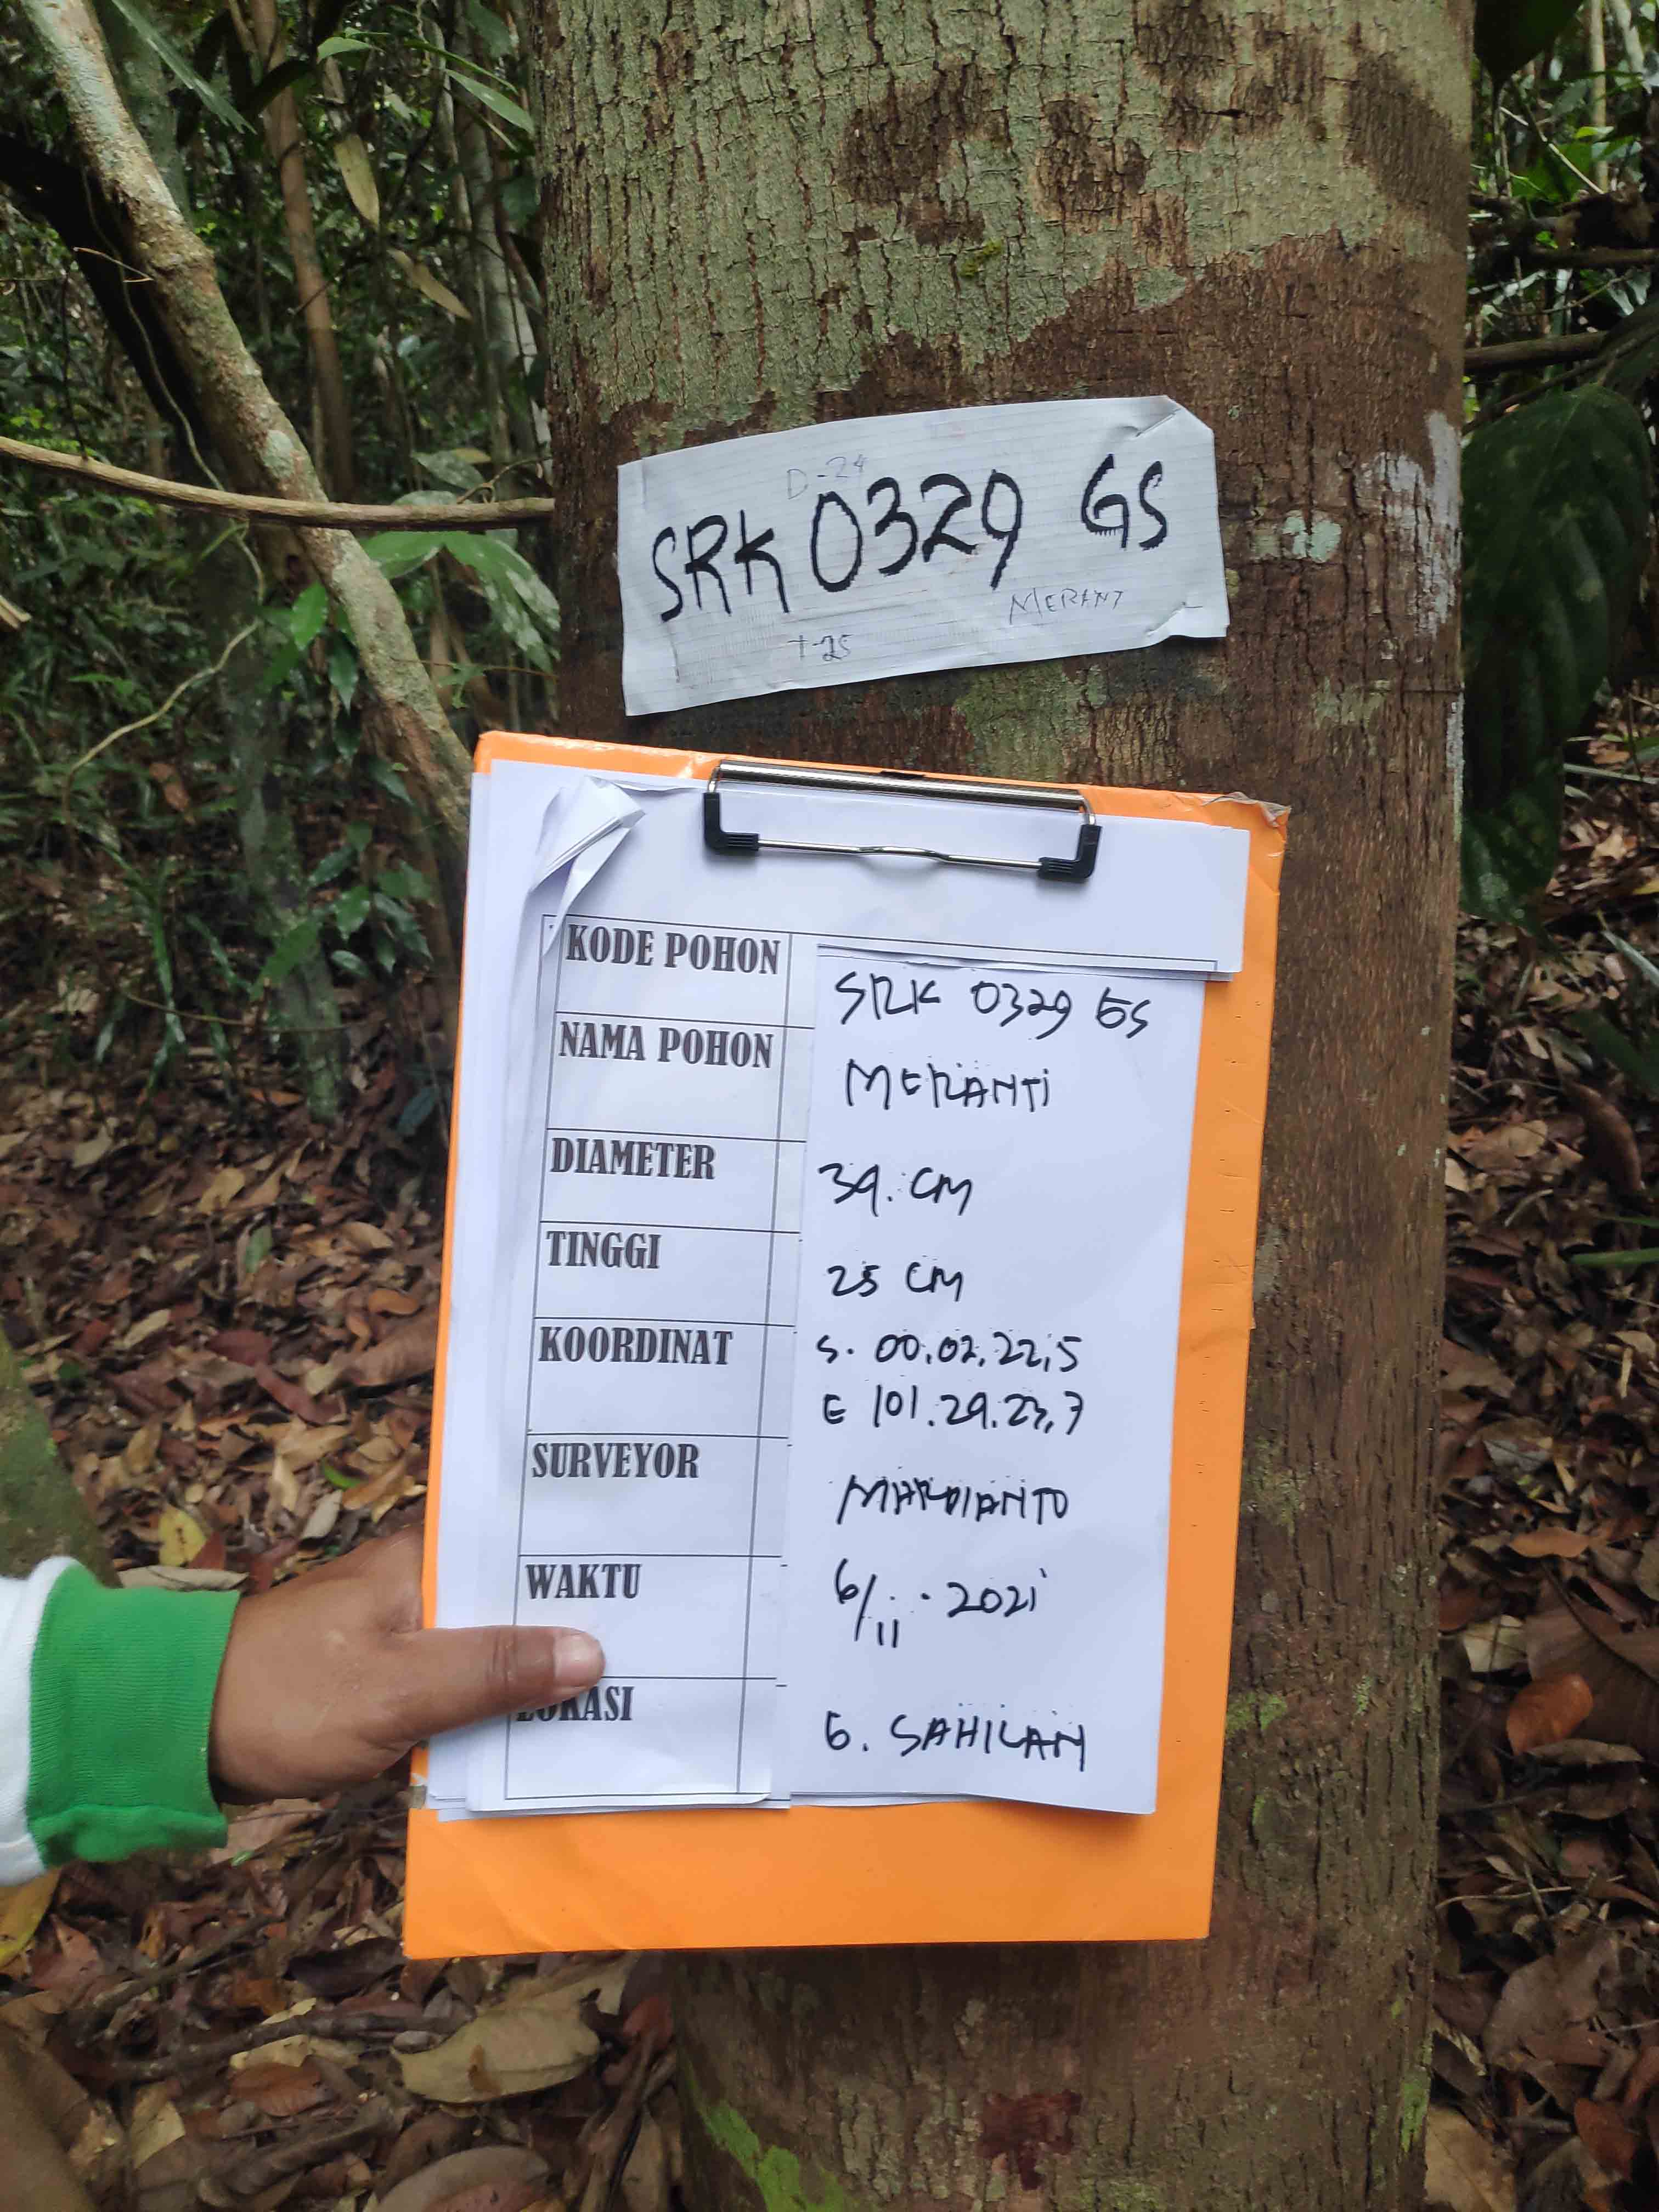 D-24
SRK 0329 GS
MERANT
T-25
KODE POHON
SRK 0329 GS
NAMA POHON
MERANTI
DIAMETER
39. CM
TINGGI
25 CM
KOORDINAT
S. 00.02.22,5
E 101.29.23,7
SURVEYOR
MARDIANTO
WAKTU
6/11.2021
LOKASI
G. SAHILAN